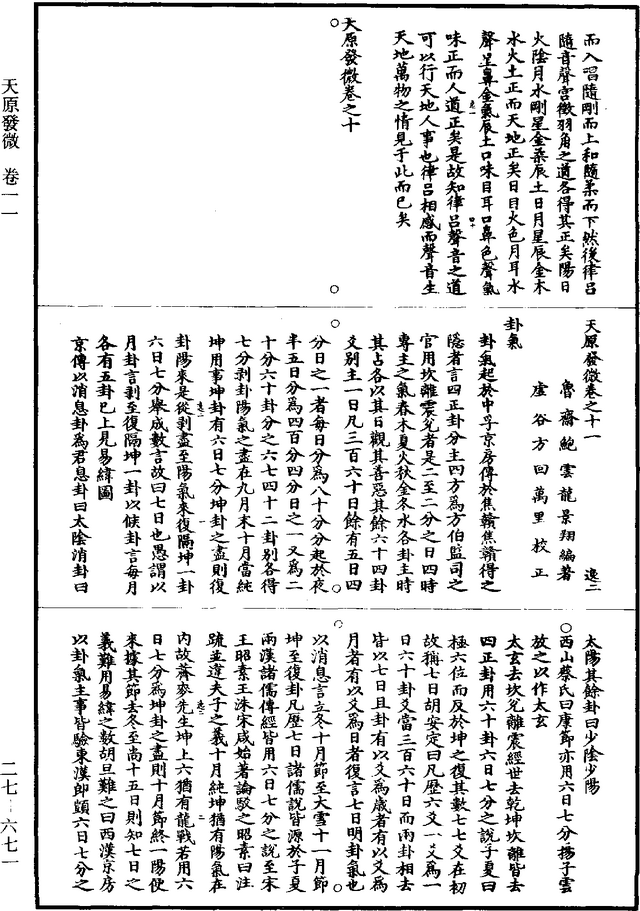 天原發微 卷一一
而入唱隨剛而上和隨柔而下然後律呂
隨音聲宮徵羽角之道各得其正矣陽日
火陰月水剛星金柔辰土日月星辰金木
水火土正而天地正矣日目火色月耳水
聲星鼻金氣辰土口味目耳口鼻色聲氣
味正而人道正矣是故知律呂聲音之道
可以行天地人事也律呂相感而聲音生
天地萬物之情見于此而已矣
天原發微卷之十
天原發微卷之十一
魯齋鮑雲龍景翔編著
虛谷方回萬里校正
卦氣
卦氣起於中孚京房傳於焦贛焦贛得之
隱者言四正卦分主四方為方伯監司之
官用坎離震兌者是二至二分之日四時
專主之氣春木夏火秋金冬水各卦主時
其占各以其日觀其善惡其餘六十四卦
爻別主一日凡三百六十日餘有五日四
分日之一者每日分為八十分分起於夜
半五日分為四百分四分日之一又為二
十分六十卦分之六七四十二卦別各得
七分剥卦陽氣之盡在九月末十月當純
坤用事坤卦有六日七分坤卦之盡則復
卦陽來是從剥盡至陽氣來復隔坤一卦
六日七分舉成數言故曰七日也愚謂以
月卦言剥至復隔坤一卦以候卦言每月
各有五卦已上見易緯圖
京傳以消息卦為君息卦曰太陰消卦曰
太陽其餘卦曰少陰少陽
○西山蔡氏曰康節亦用六日七分揚子雲
放之以作太玄
太玄去坎兌離震經世去乾坤坎離皆去
四正卦用六十卦六日七分之說子夏曰
極六位而反於坤之復其數七七爻在初
故稱七日胡安定曰凡歷六爻一爻為一
日六十卦爻當三百六十日而兩卦相去
皆以七日且卦有以爻為歲者有以爻為
月者有以爻為日者復言七日明卦氣也
以消息言立冬十月節至大雪十一月節
坤至復卦凡歷七日諸儒說皆源於子夏
兩漢諸儒傳經皆用六日七分之說至宋
王昭素王洙宋咸始著論駮之昭素曰注
疏並違夫子之義十月純坤猶有陽氣在
內故薺麥先生坤上六猶有龍戰若用六
日七分為坤卦之盡則十月節終一陽便
來據其節去冬至尚十五日則知七日之
義難用易緯之數胡旦難之曰西漢京房
以卦氣主事皆驗東漢郎顗六日七分之
二七—六七一